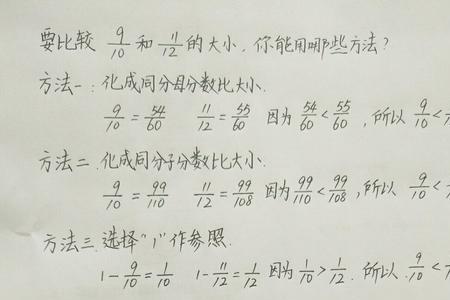 要比较 9/10 和 11/12 的大小，你能用哪些方法？
方法一：化成同分母分数比大小.
9/10 = 54/60  11/12 = 55/60  因为 54/60 < 55/60，所以 9/10 <
方法二.化成同分子分数比大小.
9/10 = 99/110  11/12 = 99/108  因为 99/110 < 99/108，所以 9/10 <
方法三.选择"1"作参照.
1 - 9/10 = 1/10  1 - 11/12 = 1/12  因为 1/10 > 1/12.所以 9/10 <